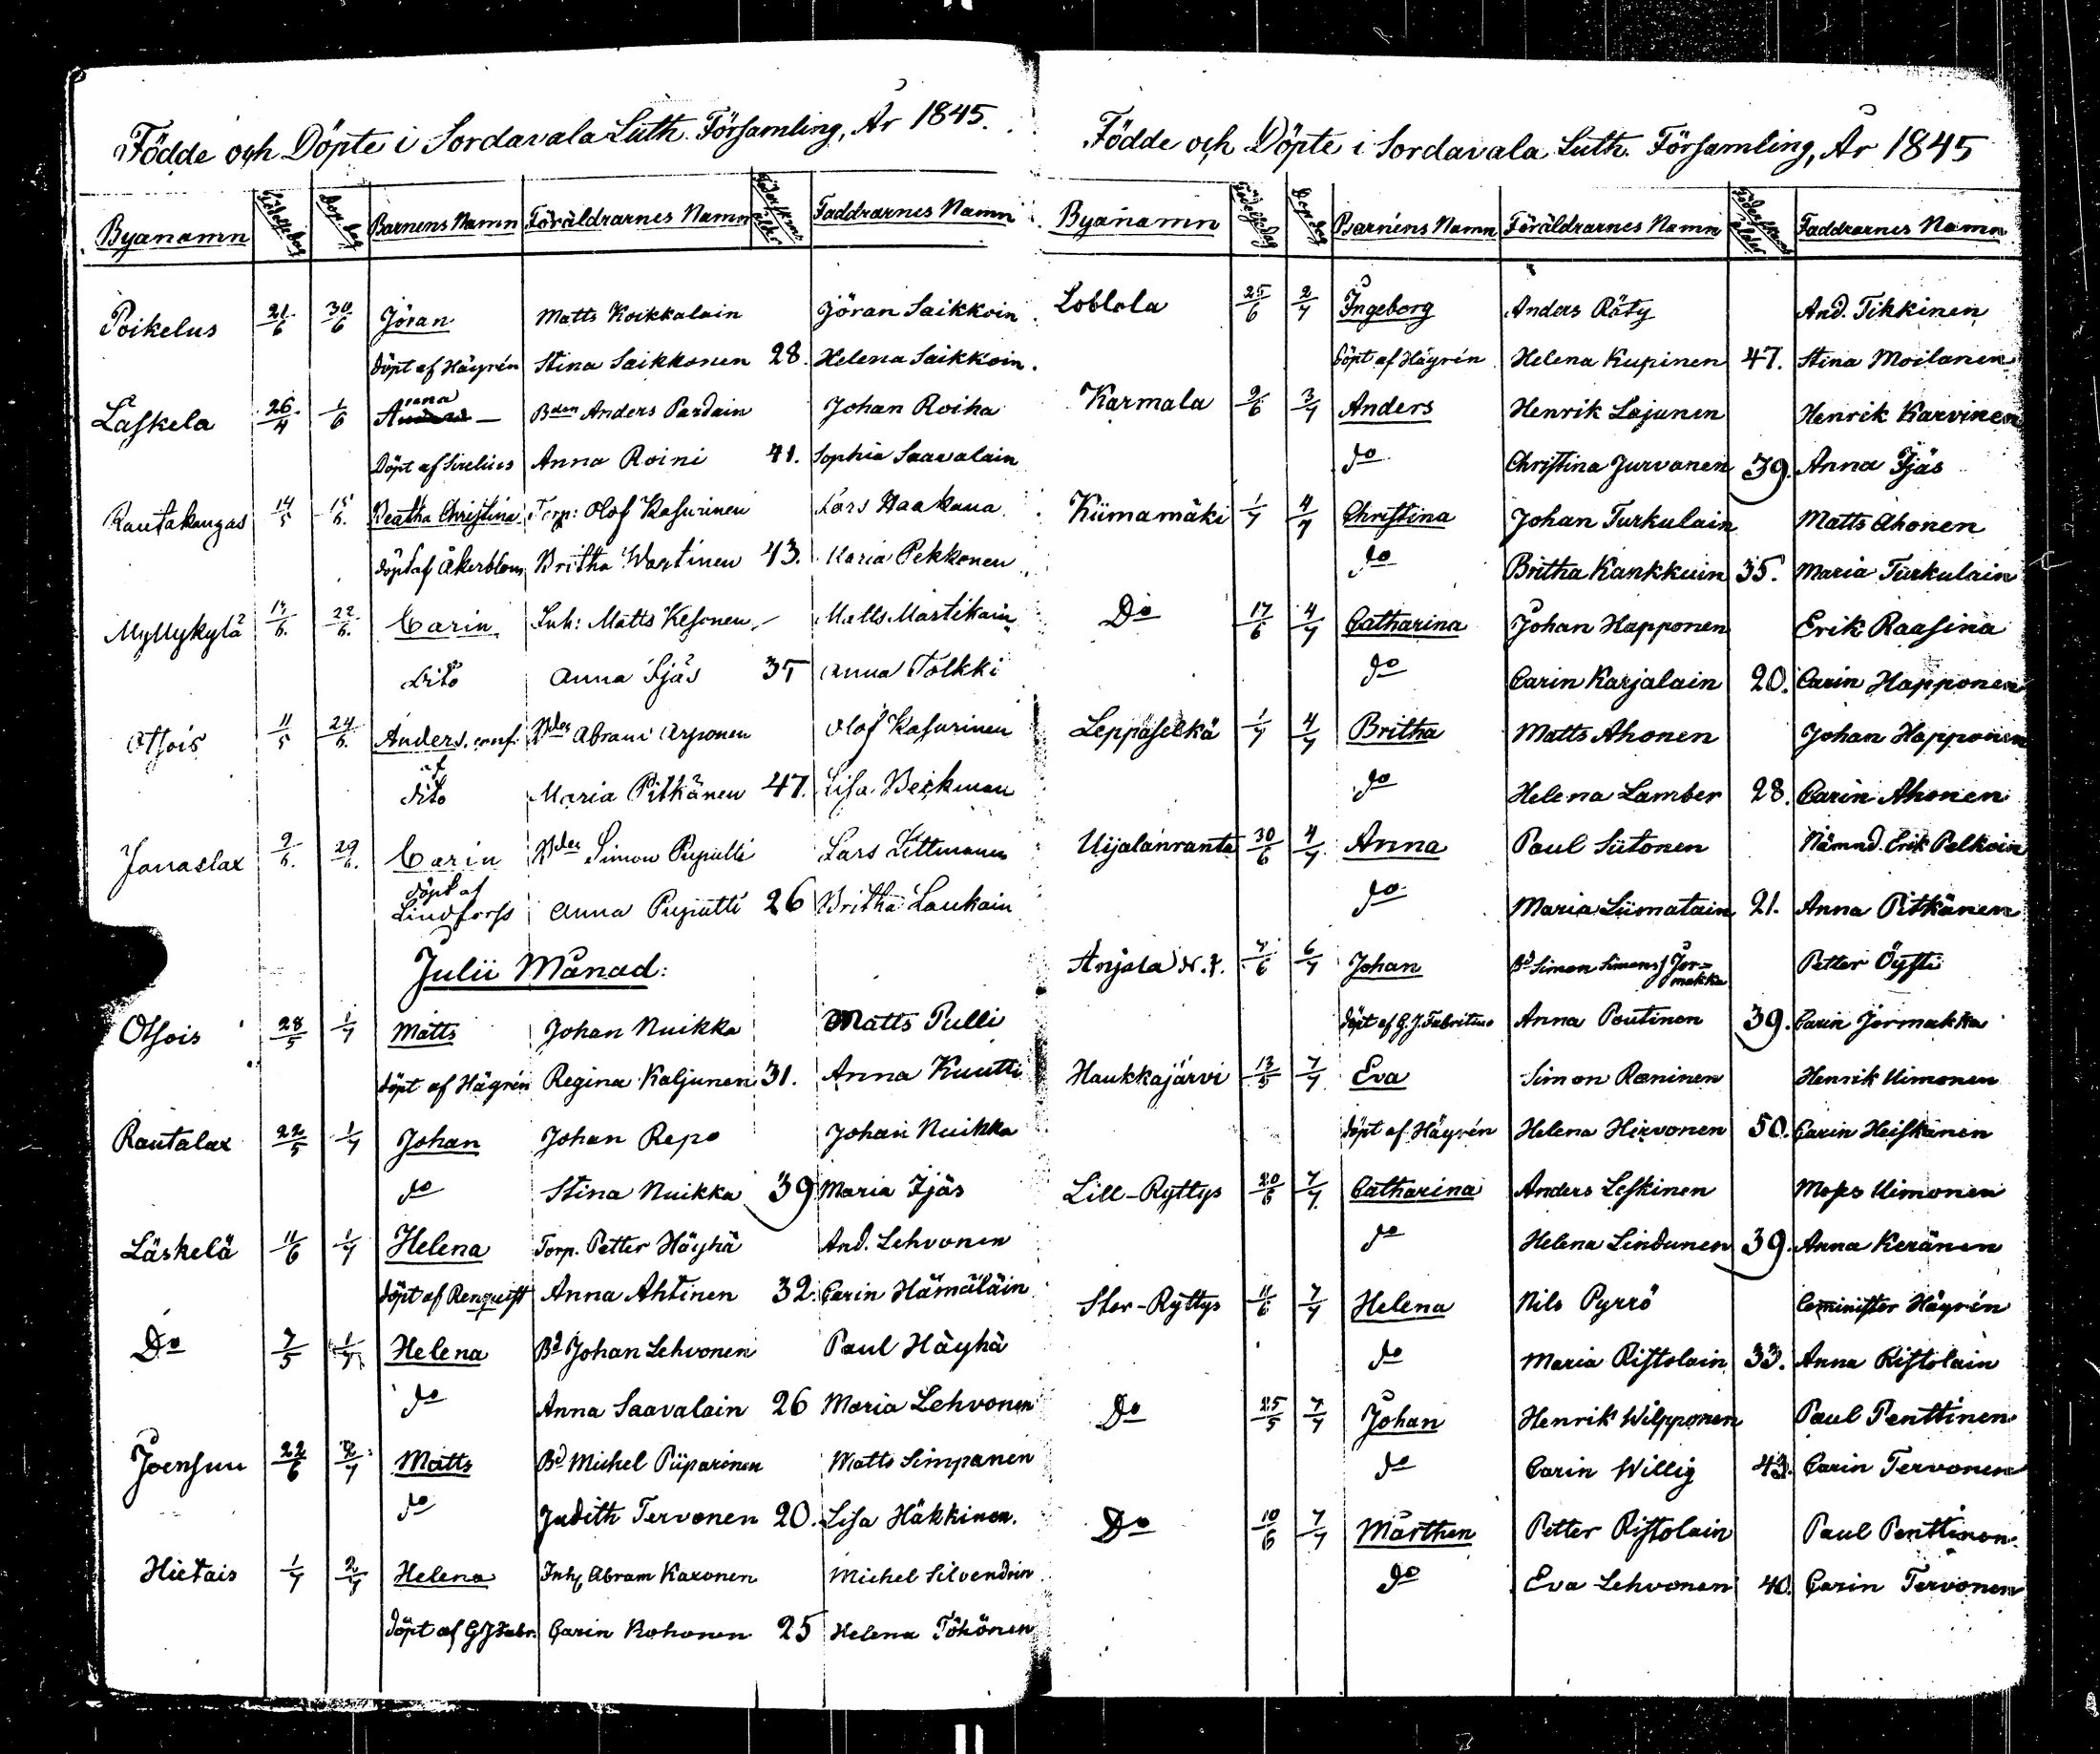 Födde och Döpte i Sordavala Luth. Församling, År 1845.
Byanamn Födelsedag Dopdag Barnens Namn Föräldrarnes Namn Föderskans ålder Faddrarnes Namn
Poikelus 21/6 30/6 Jöran Matts Koikkalain Jöran Saikkoin
döpt af Häyrén Stina Saikkonen 28. Helena Saikkoin.
Läskela 26/4 1/6 Anna Bden Anders Pardain Johan Roiha
Döpt af Sirelius Anna Roini 41. Sophia Saavalain
Rautakangas 14/5 15/6. Beatha Christina Torp: Olof Kasurinen Lars Haakana
döpt af Åkerblom Britha Wartinen 43. Maria Pekkonen
Myllykylä 17/6. 22/6. Carin Inh: Matts Kesonen Matts Martikain
dito Anna Ijäs 35 Anna Tölkki
Otsois 11/5 24/6. Anders. Bden Abram Arponen Olof Kasurinen
af dito Maria Pitkänen 47. Lisa Beckman
Janaslax 9/6. 29/6. Carin Bden Simon Puputti Lars Littmanen
döpt af Lindforss Anna Puputti 26 Britha Laukain
Julii Månad:
Otsois 28/5 1/7 Matts Johan Nuikka Matts Pulli
döpt af Hägrén Regina Kaljunen 31. Anna Kuutti
Rautalax 22/5 1/7 Johan Johan Repo Johan Nuikka
do Stina Nuikka 39 Maria Ijäs
Läskelä 11/6 1/7 Helena Torp. Petter Häyhä And. Lehvonen
döpt af Renquist Anna Ahtinen 32. Carin Hämäläin
Do 7/5 1/7 Helena Bd Johan Lehvonen Paul Häyhä
do Anna Saavalain 26 Maria Lehvonen
Joensuu 22/6 2/7 Matts Bd Michel Piiparinen Matts Simpanen
do Judith Tervonen 20. Lisa Häkkinen.
Hietais 1/7 2/7 Helena Inh. Abram Karonen Michel Silvendoin
döpt af GJFabr. Carin Kohonen 25 Helena Töhönen
Födde och Döpte i Sordavala Luth. Församling, År 1845
Byanamn Födelsedag Dopdag Barnens Namn Föräldrarnes Namn Föderskans ålder Faddrarnes Namn
Loblola 25/6 2/7 Ingeborg Anders Räty And. Tikkinen
döpt af Häyrén Helena Kupinen 47. Stina Moilanen
Karmala 9/6 3/7 Anders Henrik Lajunen Henrik Karvinen
do Christina Jurvanen 39. Anna Ijäs
Kiimamäki 1/7 4/7 Christina Johan Turkulain Matts Ahonen
do Britha Kankkuin 35. Maria Turkulain
Do 17/6 4/7 Catharina Johan Happonen Erik Raasina
do Carin Karjalain 20. Carin Happonen
Leppäselkä 1/7 4/7 Britha Matts Ahonen Johan Happonen
do Helena Lamber 28. Carin Ahonen
Uijalanranta 30/6 4/7. Anna Paul Siitonen Nämnd. Erik Pelkoin
do Maria Liimatain 21. Anna Pitkänen
Anjala N.7. 7/6 6/7 Johan Bd Simon Simons/ Jormakka Petter Öysti
döpt af G.J.Fabritius Anna Poutinen 39. Carin Jormakka
Haukkajärvi 13/5 7/7 Eva Simon Roeninen Henrik Uimonen
döpt af Häyrén Helena Hirvonen 50. Carin Heiskanen
Lill-Ryttys 20/6 7/7. Catharina Anders Leskinen Moses Uimonen
do Helena Lindunen 39. Anna Keränen
Stor-Ryttys 11/6 7/7 Helena Nils Pyrrö Cominister Häyrén
do Maria Ristolain 33. Anna Ristolain
Do 25/5 7/7 Johan Henrik Wilpponen Paul Penttinen
do Carin Willig 43. Carin Tervonen
Do 10/6 7/7 Mårthen Petter Ristolain Paul Penttinen.
do Eva Lehvonen 40. Carin Tervonen